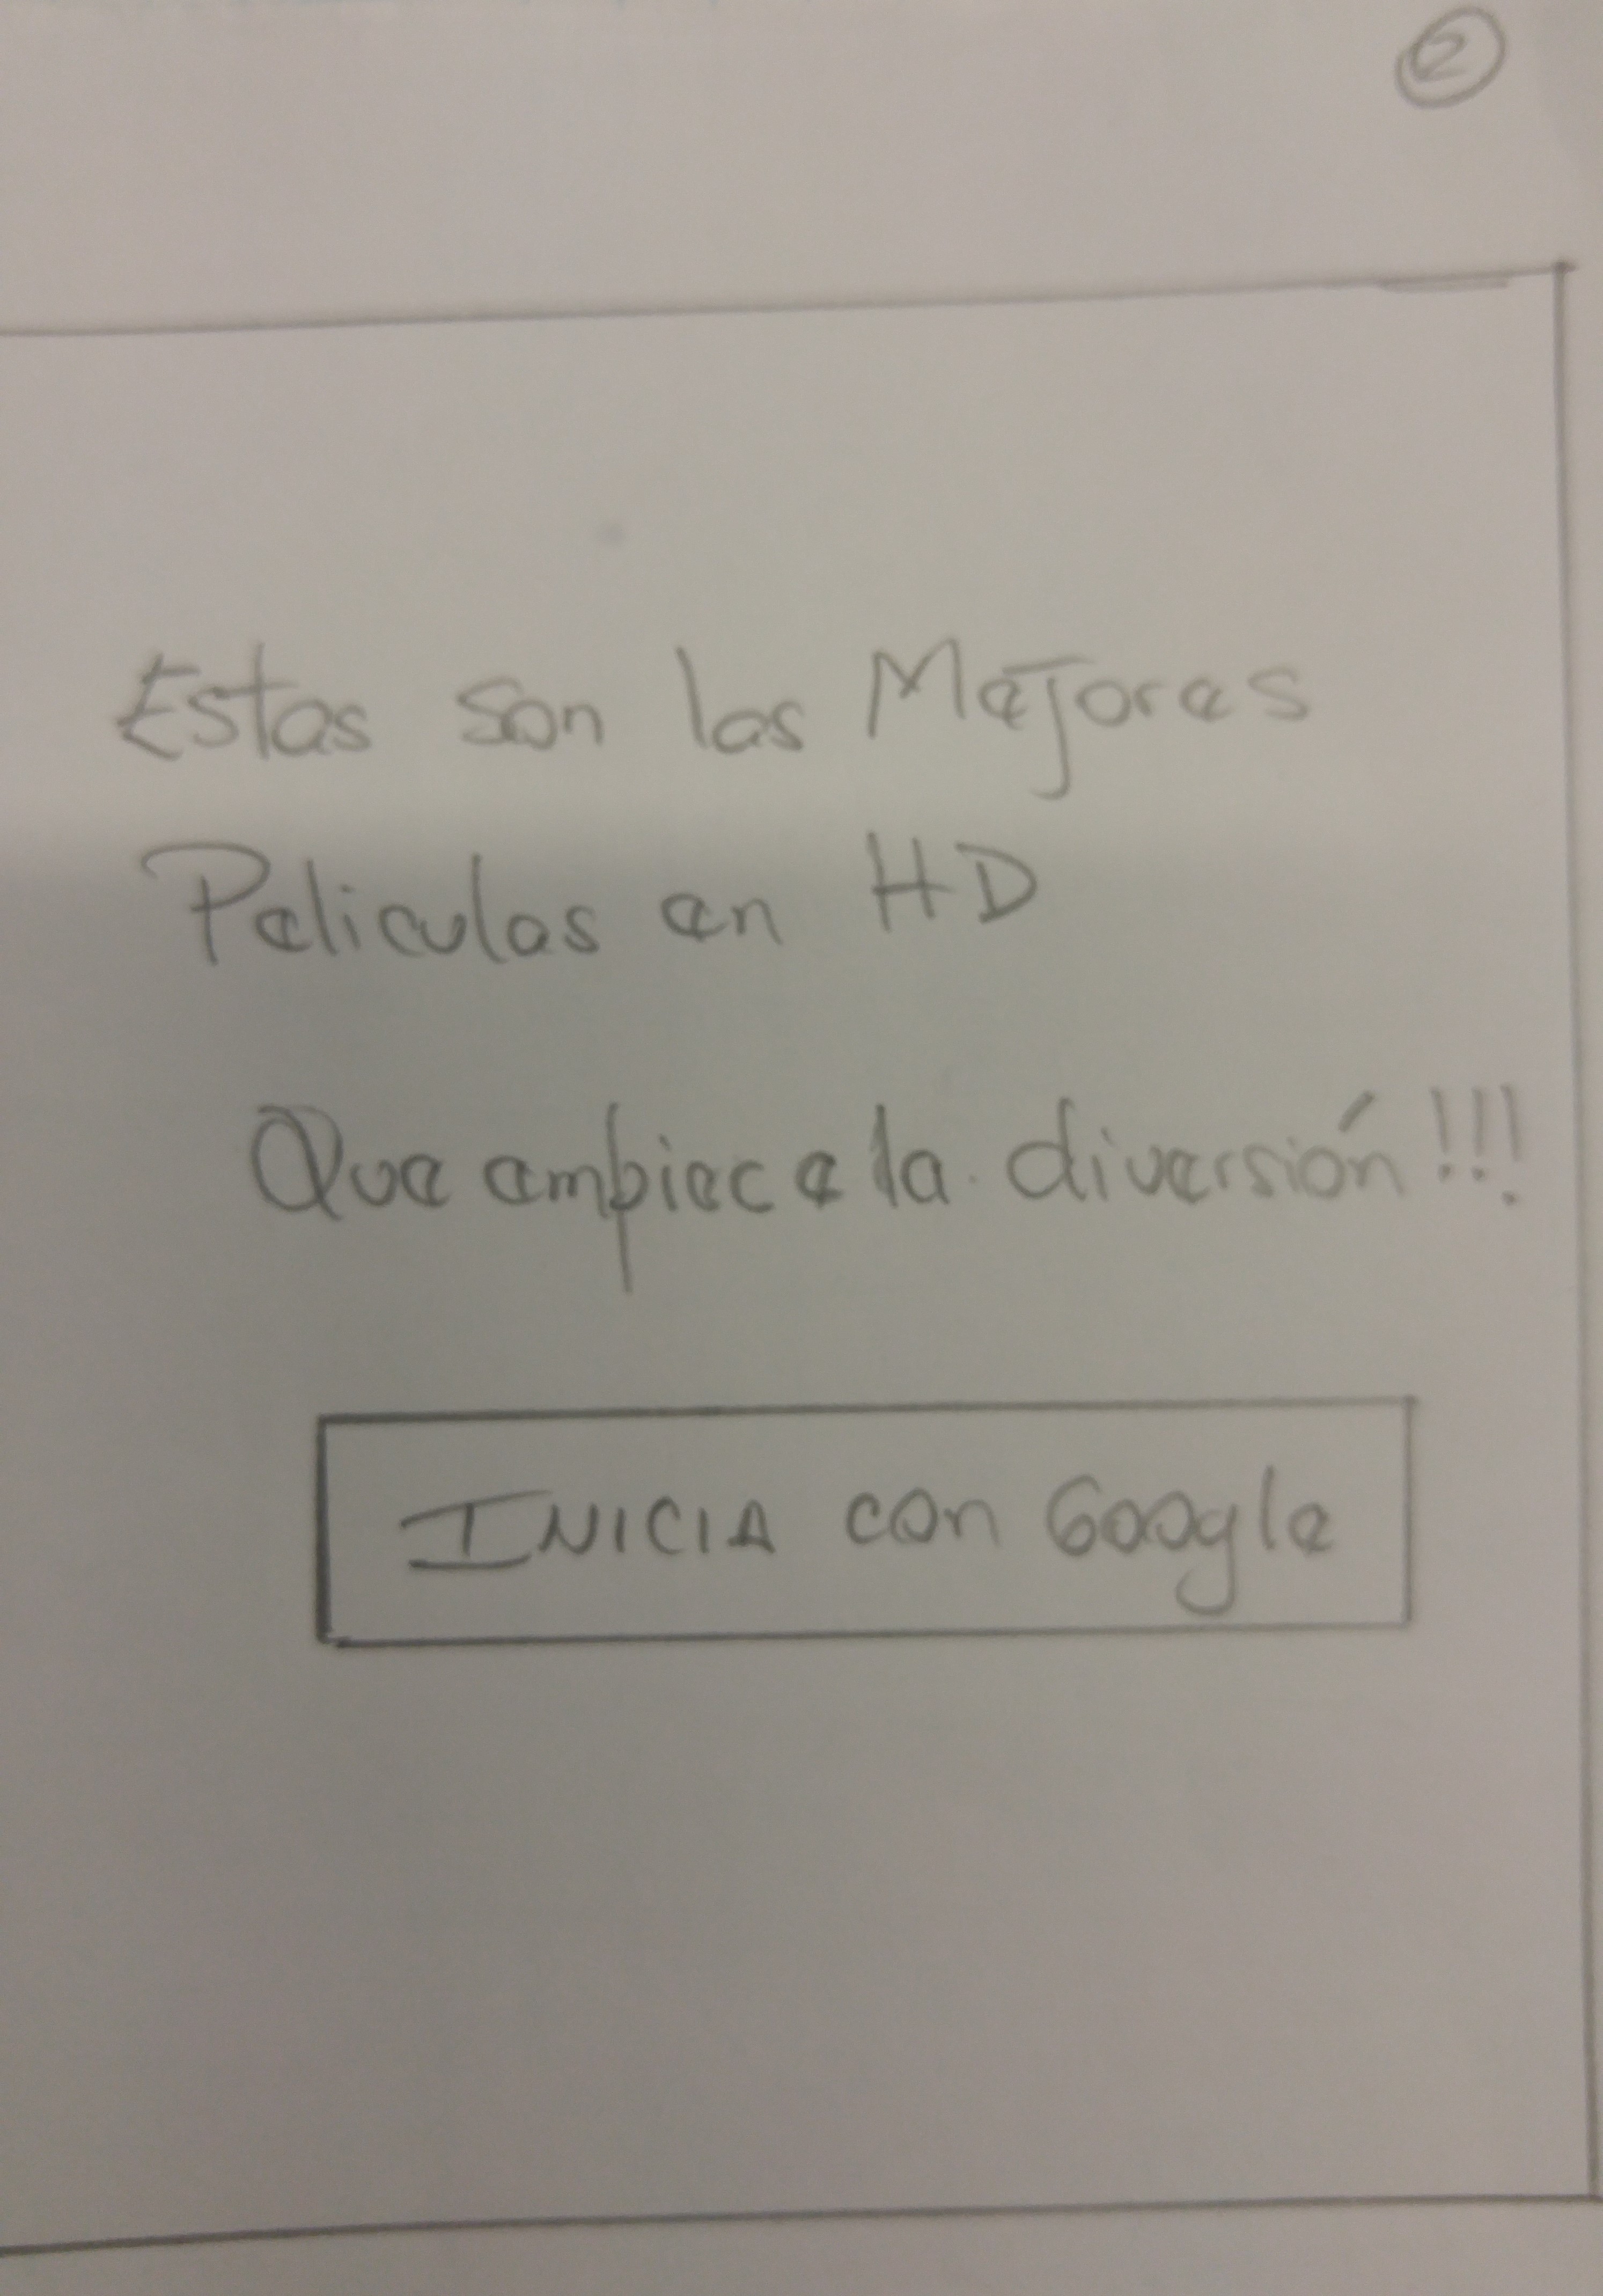 2
Estas son las Mejores
Peliculas en HD
Que empiece la diversión!!!
INICIA con Google